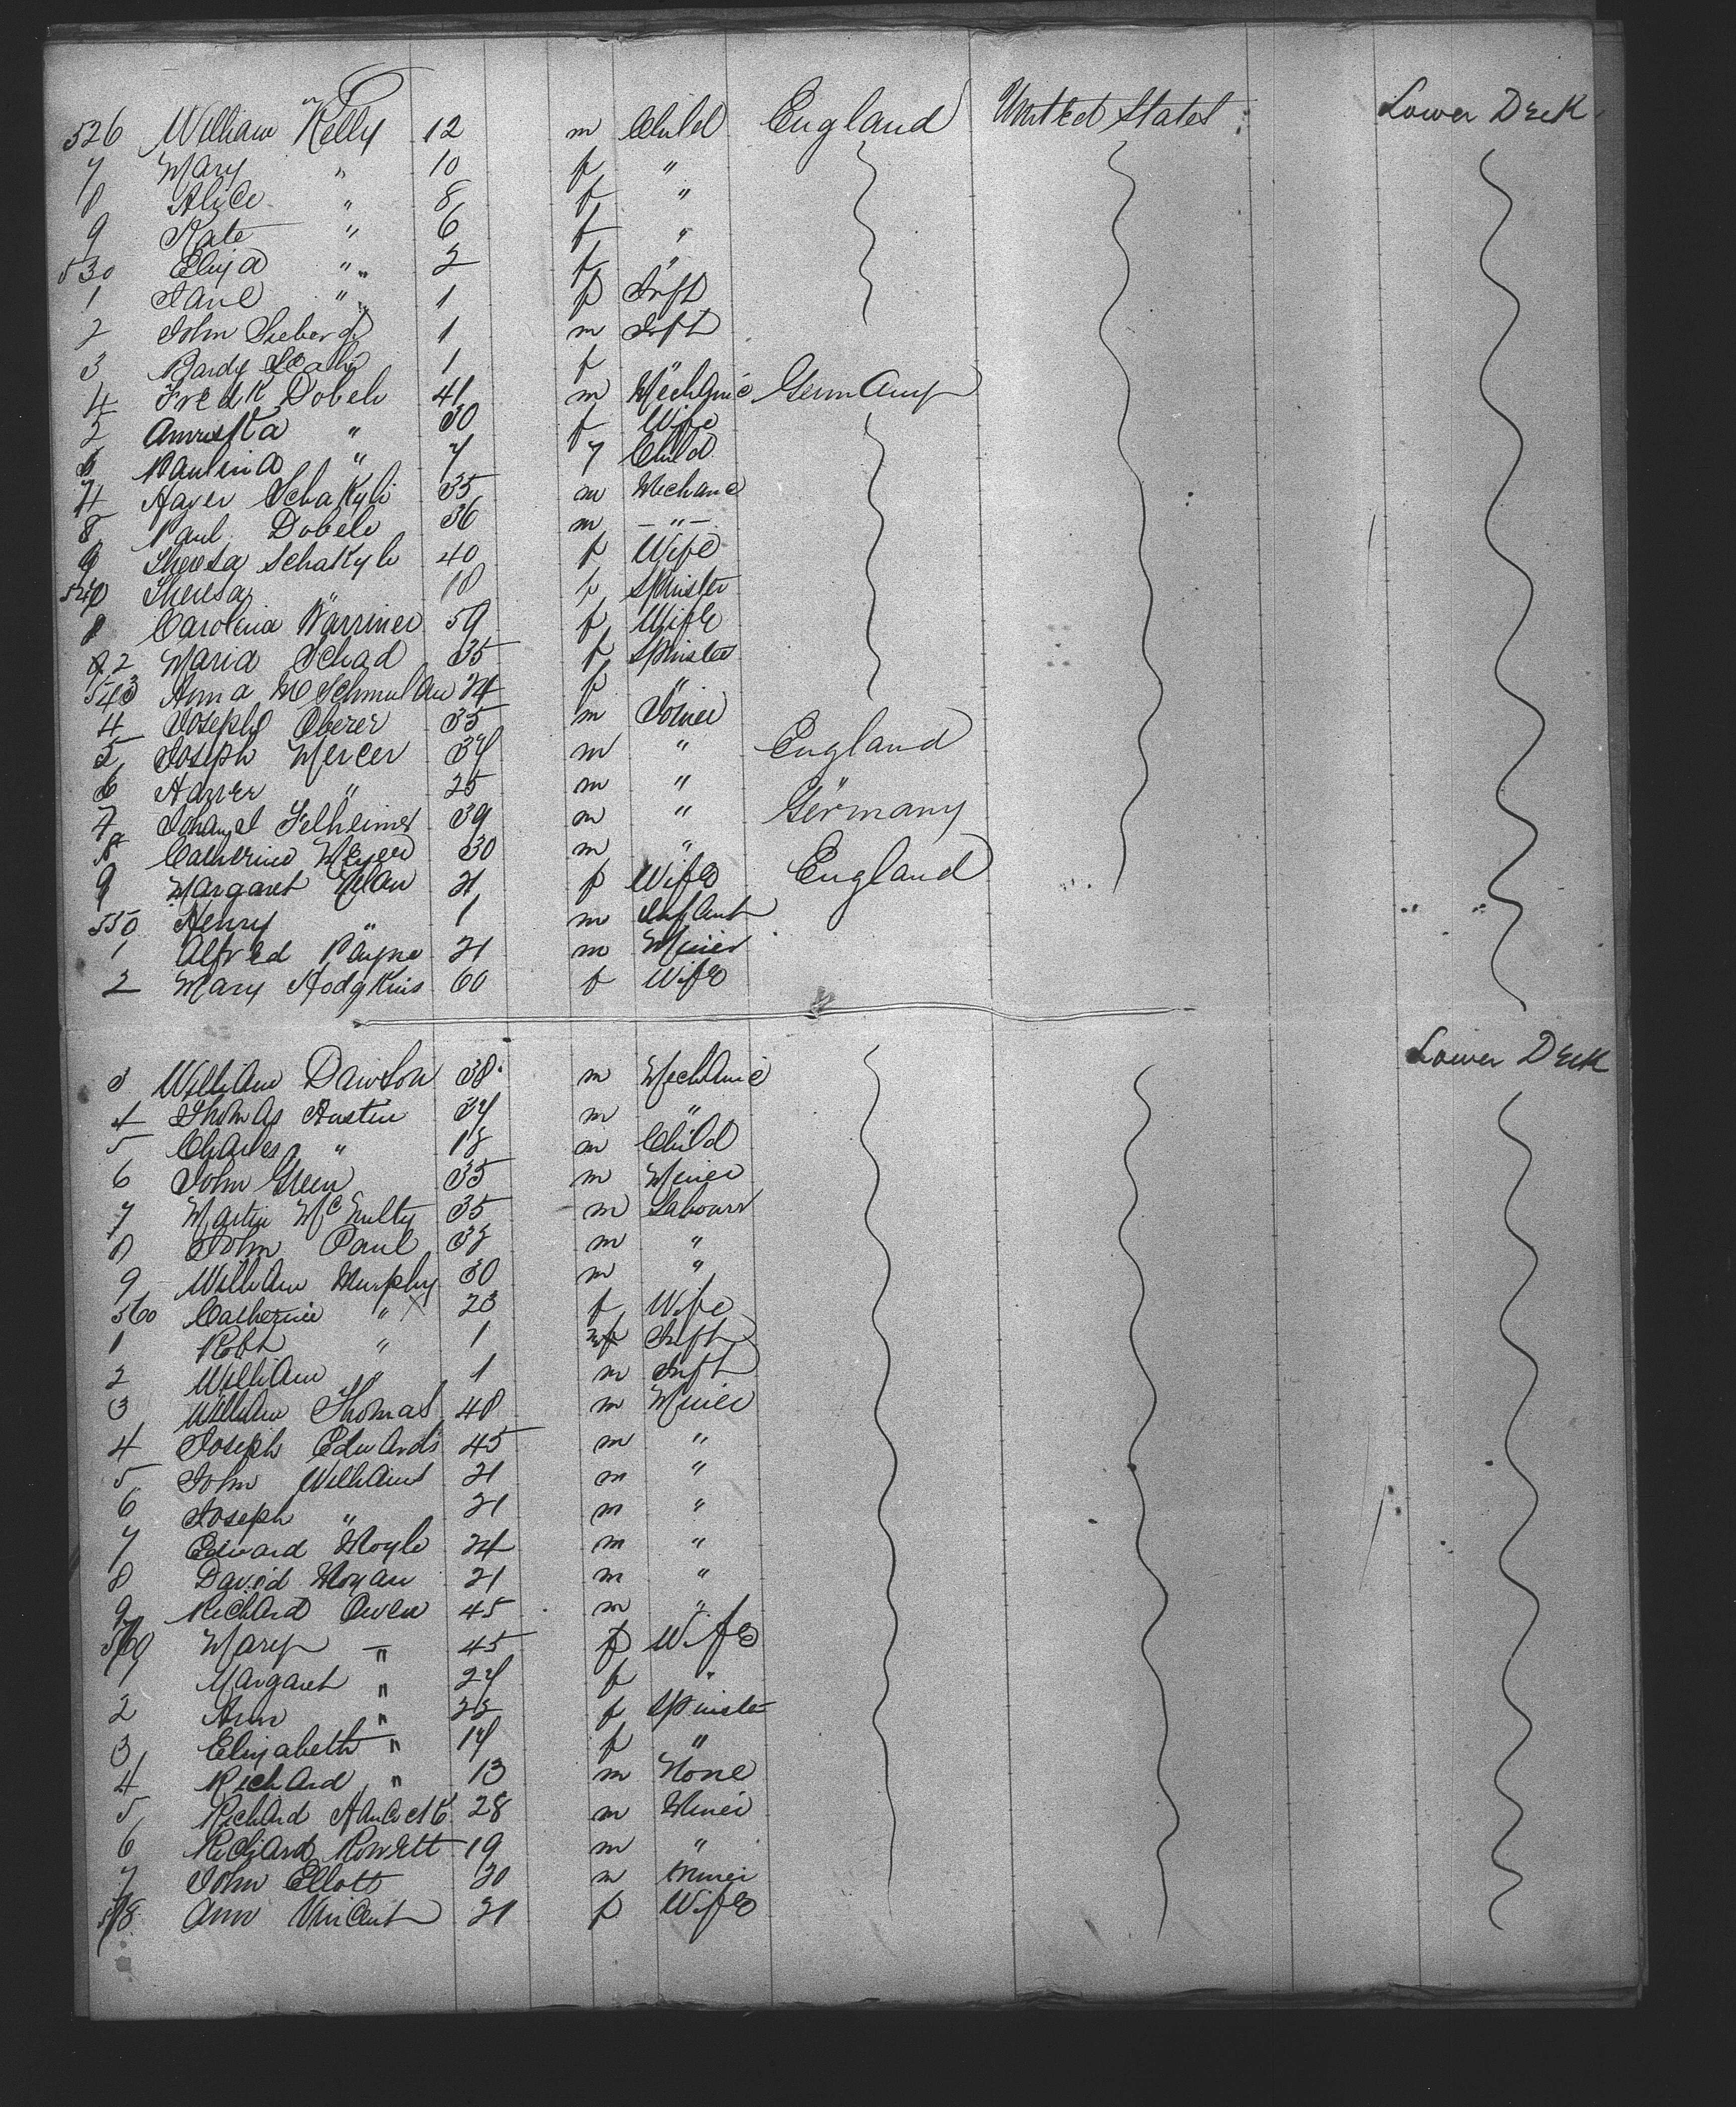 526 William Kelly 12 m Child England United States Lower Deck
7 Mary " 10 f "
8 Alice " 8 f "
9 Kate " 6 f "
530 Eliza " 2 f "
1 Jane " 1 f Inft
2 John 1 m Inft
3 1 f
4 Fredk Dobele 41 m Mechanic Germany
5 " 30 f Wife
6 Paulina " 7 f Child
7 35 m Mechanic
8 Paul Dobele 36 m — " —
9 Theresa 40 f Wife
540 Theresa " 18 f Spinster
Carolina Warriner 59 f Wife
2 Maria Schad 35 f Spinster
543 Anna 24 f "
4 Joseph Oberer 35 m Joiner
5 Joseph Mercer 34 m " England
6 " 25 m "
7 39 m " Germany
8 Catherine Meyer 30 m " England
9 Margaret 21 f Wife
550 Henry " 1 m Infant
1 Alfred Payne 21 m Miner
2 Mary Hodgkins 60 f Wife
Lower Deck
3 William Dawson 38 m Mechanic
4 Thomas Austin 34 m "
5 Charles " m Child
6 John Green 35 m Miner
7 Martin McNulty 35 m Labourr
8 John Paul m "
9 William Murphy 30 m "
560 Catherine " 23 f Wife
1 Robt " 1 Inft
2 William " 1 m Inft
3 William Thomas 48 m Miner
4 Joseph Edwards 45 m "
5 John Williams 21 m "
6 Joseph " 21 m "
7 Edward Hoyle 24 m "
8 David 21 m "
9 Richard Owen 45 m "
Mary — " 45 f Wife
1 Margaret " 24 f "
2 Ann " f Spinster
3 Elizabeth " 14 f "
4 Richard " 13 m None
5 Richard Hancock 28 m Miner
6 Richard Rowett 19 m "
7 John Ellott 30 m Miner
578 Ann Vincent 21 f Wife